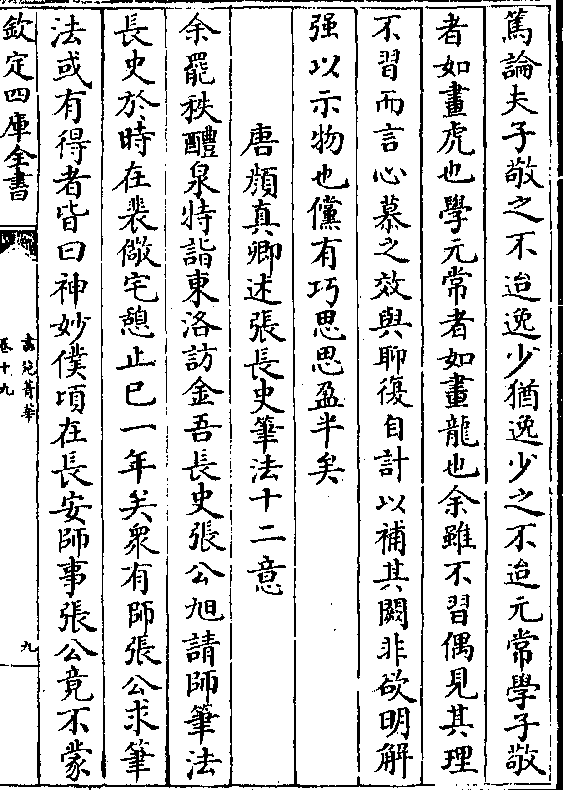 篤論夫子敬之不迨逸少猶逸少之不迨元常學子敬
者如畫虎也學元常者如畫龍也余雖不習偶見其理
不習而言心慕之效與聊復自計以補其闕非欲明解
强以示物也儻有巧思思盈半矣
唐顏真卿述張長史筆法十二意
余罷秩醴泉特詣東洛訪金吾長史張公旭請師筆法
長史於時在裴儆宅憩止已一年矣衆有師張公求筆
法或有得者皆曰神妙僕頃在長安師事張公竟不蒙
欽定四庫全書
書苑菁華
卷十九
九